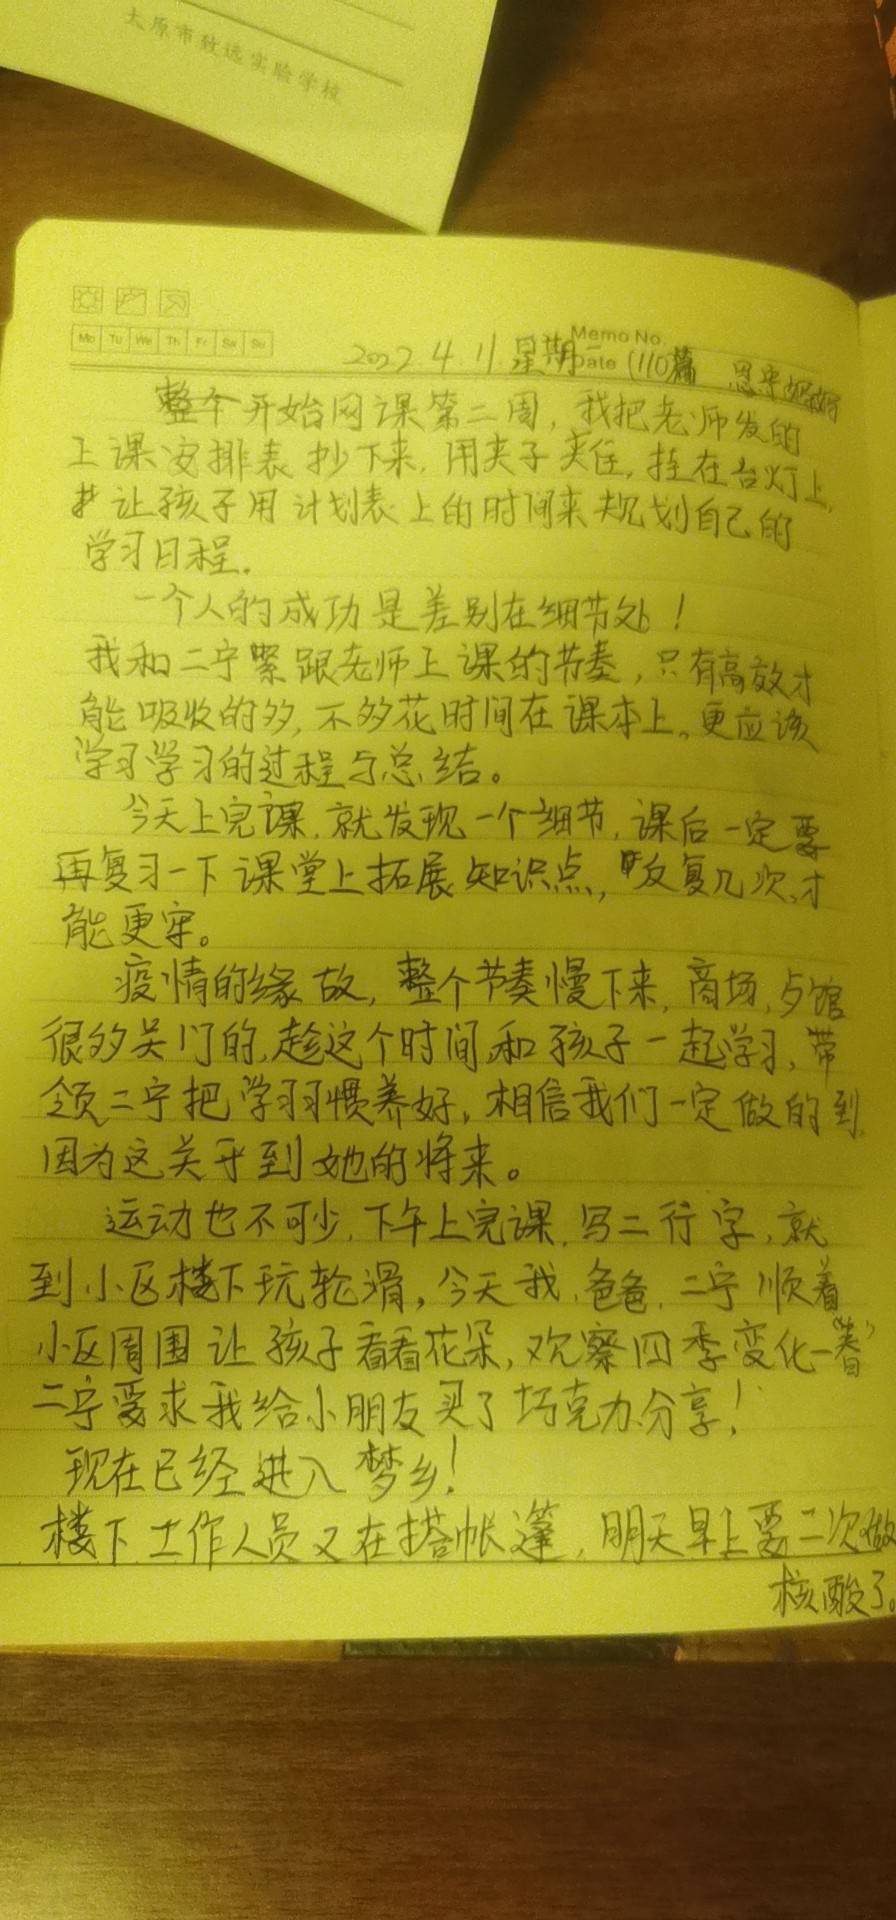 太原市致远实验学校
Mo Tu We Th Fr Sa Su
Memo No.
Date
2022.4.11.星期一 (110篇 恩宁妈妈
整个开始网课第二周，我把老师发的
上课安排表抄下来，用夹子夹住，挂在台灯上，
让孩子用计划表上的时间来规划自己的
学习日程。
一个人的成功是差别在细节处！
我和二宁紧跟老师上课的节奏，只有高效才
能吸收的多，不多花时间在课本上，更应该
学习学习的过程与总结。
今天上完课，就发现一个细节，课后一定要
再复习一下课堂上拓展知识点，反复几次，才
能更牢。
疫情的缘故，整个节奏慢下来，商场，馆
很多关门的，趁这个时间，和孩子一起学习，带
领二宁把学习习惯养好，相信我们一定做的到，
因为这关乎到她的将来。
运动也不可少，下午上完课，写二行字，就
到小区楼下玩轮滑，今天我、爸爸、二宁顺着
小区周围让孩子看看花朵，观察四季变化—“春”
二宁要求我给小朋友买了巧克力分享！
现在已经进入梦乡！
楼下工作人员又在搭帐篷，明天早上要二次做
核酸了。